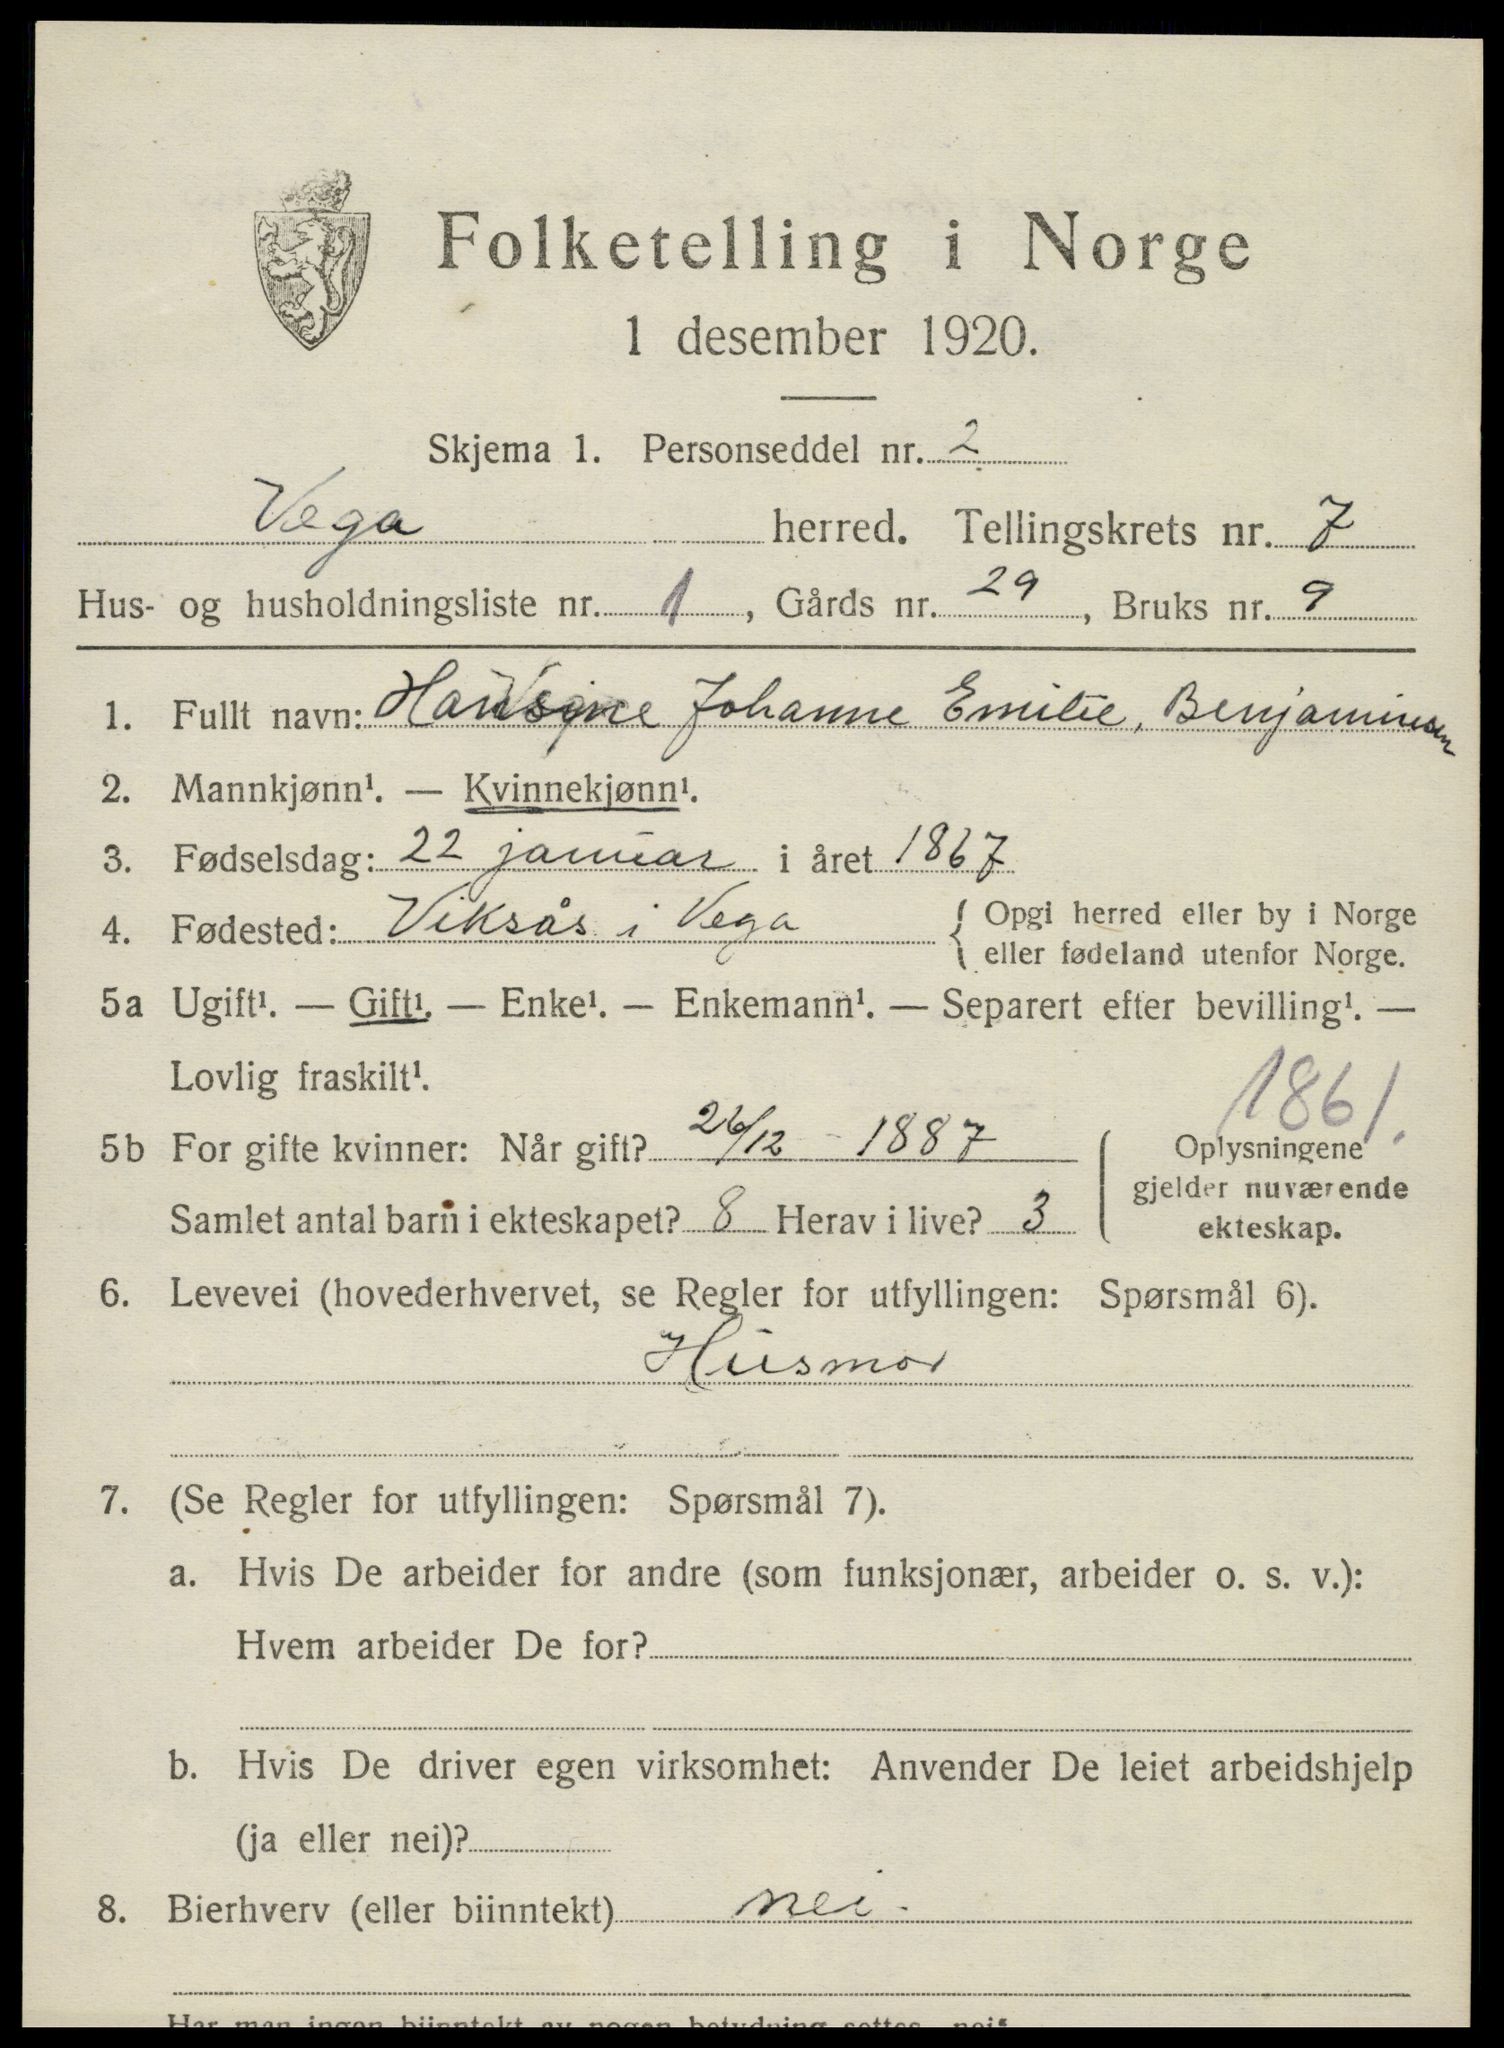 Folketelling i Norge
1 desember 1920.
Skjema 1. Personseddel nr. 2
Vega herred. Tellingskrets nr. 7
Hus- og husholdningsliste nr. 1, Gårds nr. 29, Bruks nr. 9
1. Fullt navn: Johanne Emilie, Benjaminsen
2. Mannkjønn¹. — Kvinnekjønn¹.
3. Fødselsdag: 22 januar i året 1867
4. Fødested: Viksås i Vega { Opgi herred eller by i Norge
eller fødeland utenfor Norge.
5a Ugift¹. — Gift¹. — Enke¹. — Enkemann¹. — Separert efter bevilling¹. —
Lovlig fraskilt¹.
1861.
5b For gifte kvinner: Når gift? 26/12 - 1887
Samlet antal barn i ekteskapet? 8 Herav i live? 3
Oplysningene
gjelder nuværende
ekteskap.
6. Levevei (hovederhvervet, se Regler for utfyllingen: Spørsmål 6).
Husmor
7. (Se Regler for utfyllingen: Spørsmål 7).
a. Hvis De arbeider for andre (som funksjonær, arbeider o. s. v.):
Hvem arbeider De for?
b. Hvis De driver egen virksomhet: Anvender De leiet arbeidshjelp
(ja eller nei)?
8. Bierhverv (eller biinntekt) nei.
Har man ingen biinntekt av nogen betydning settes „nei“